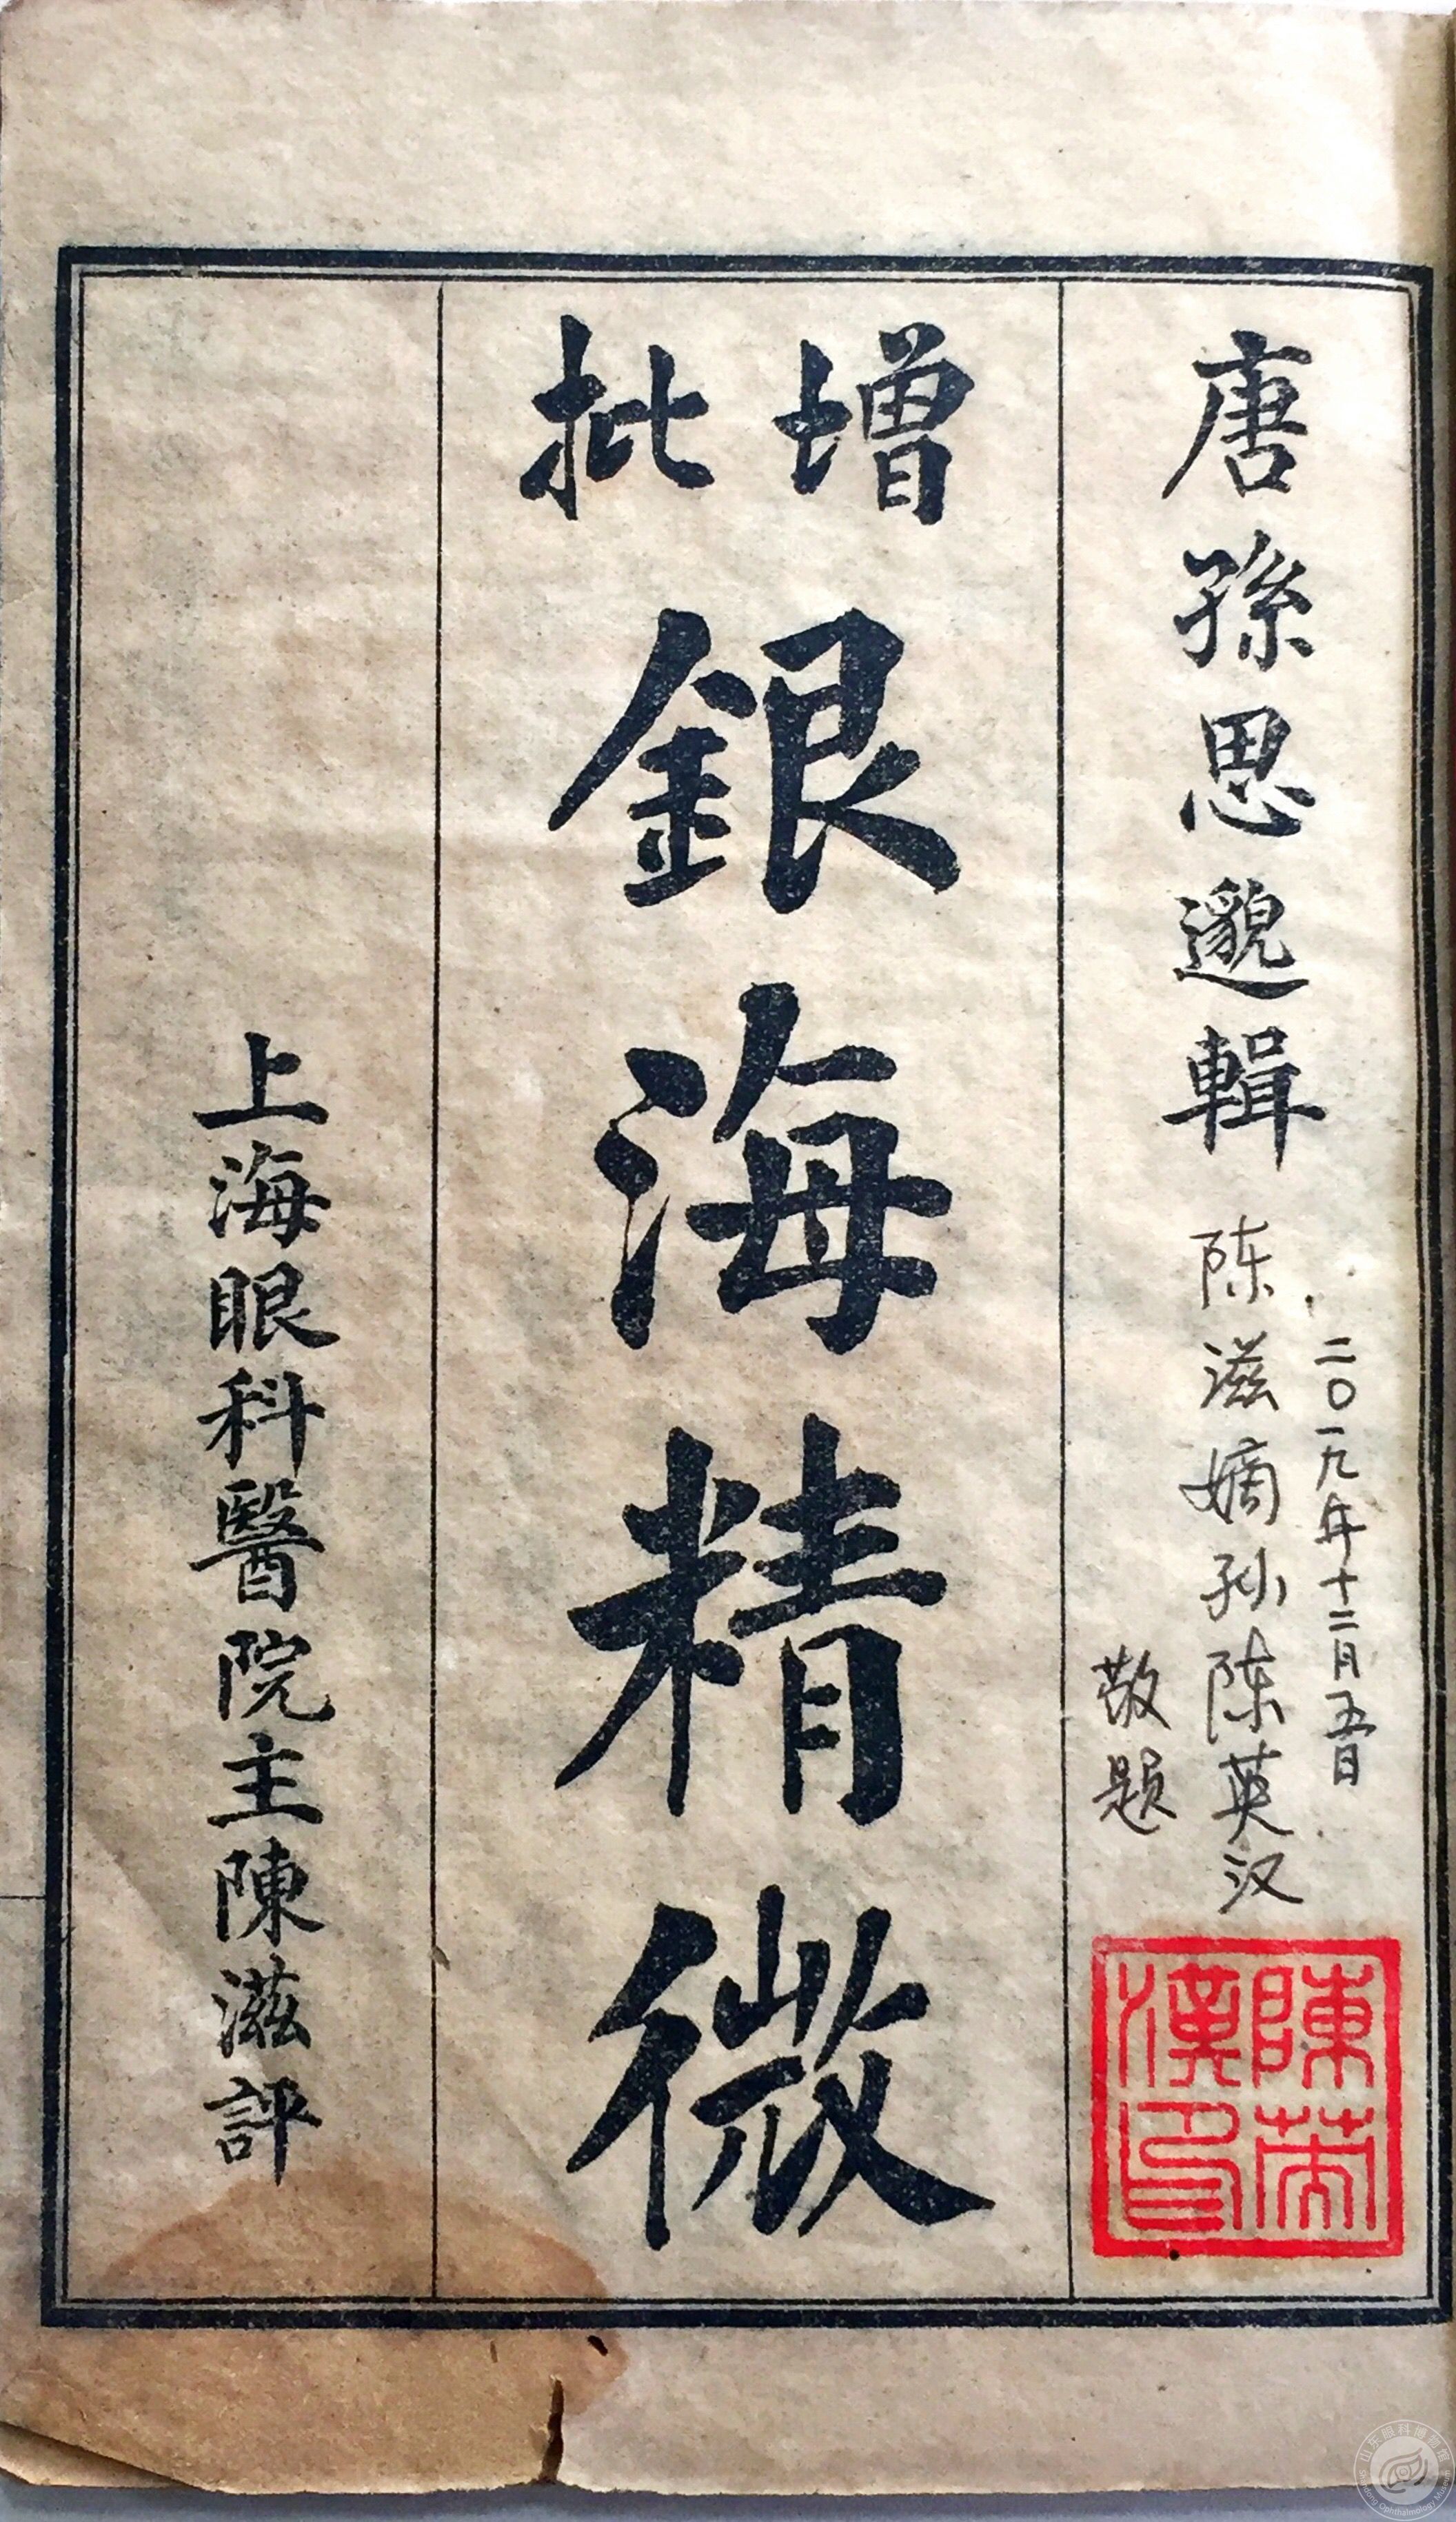 唐孫思邈輯
二〇一九年十二月五日
陈滋嫡孙陈英汉
敬题
陳英漢印
增批
銀海精微
上海眼科醫院主陳滋評
山东眼科博物馆
Shandong Ophthalmology Museum